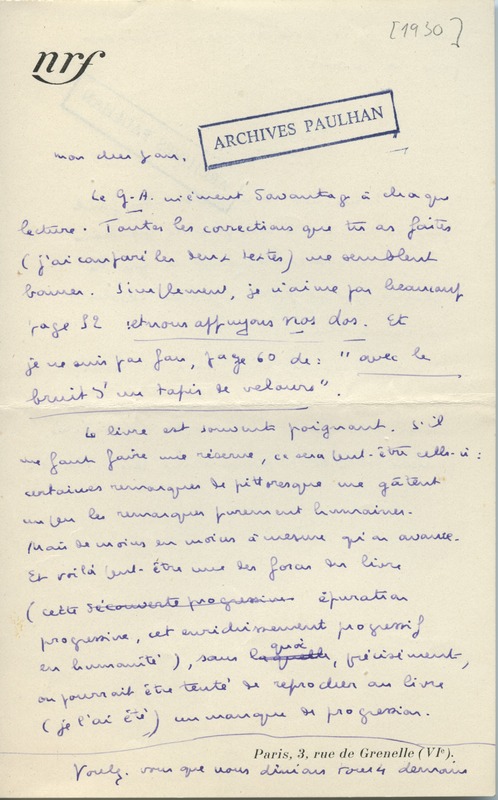 [1930]
nrf
ARCHIVES PAULHAN
mon cher Jean,
Le G-A. m'émeut davantage à chaque
lecture. Toutes les corrections que tu as faites
(j'ai comparé les deux textes) me semblent
bonnes. Simplement, je n'aime pas beaucoup
page 52 et nous appuyons nos dos. Et
je ne suis pas fou, page 60 de : "avec le
bruit d'un tapis de velours".
Le livre est souvent poignant. S'il
me faut faire une réserve, ce sera peut-être celle-ci :
certaines remarques de pittoresque me gâtent
un peu les remarques purement humaines.
Mais de moins en moins à mesure qu'on avance.
Et voilà peut-être une des forces du livre
(cette découverte progressive épuration
progressive, cet enrichissement progressif
en humanité), sans laquelle quoi, précisément,
on pourrait être tenté de reprocher au livre
(je l'ai été) un manque de progression.
Paris, 3, rue de Grenelle (VIe).
Voulez-vous que nous dînions demain